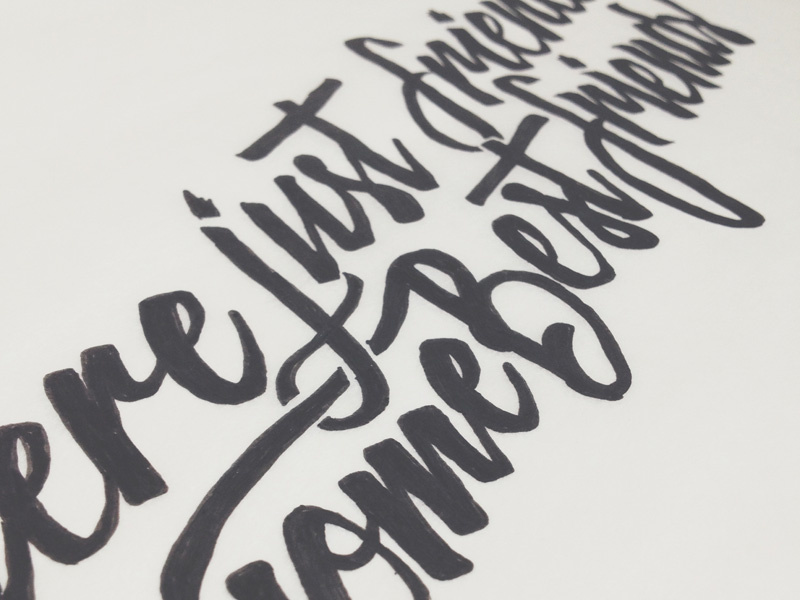 ere just friend
ome Best friends